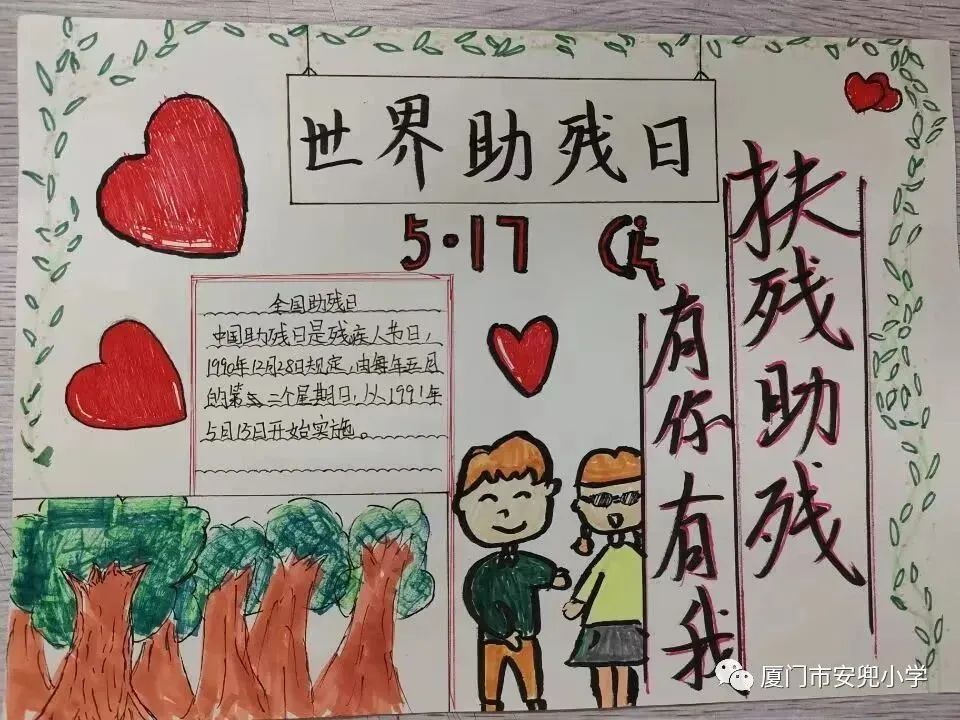 世界助残日
5·17
扶残助残
有你有我
全国助残日
中国助残日是残疾人节日，
1990年12月28日规定，由每年五月
的第二个星期日，从1991年
5月15日开始实施。
厦门市安兜小学